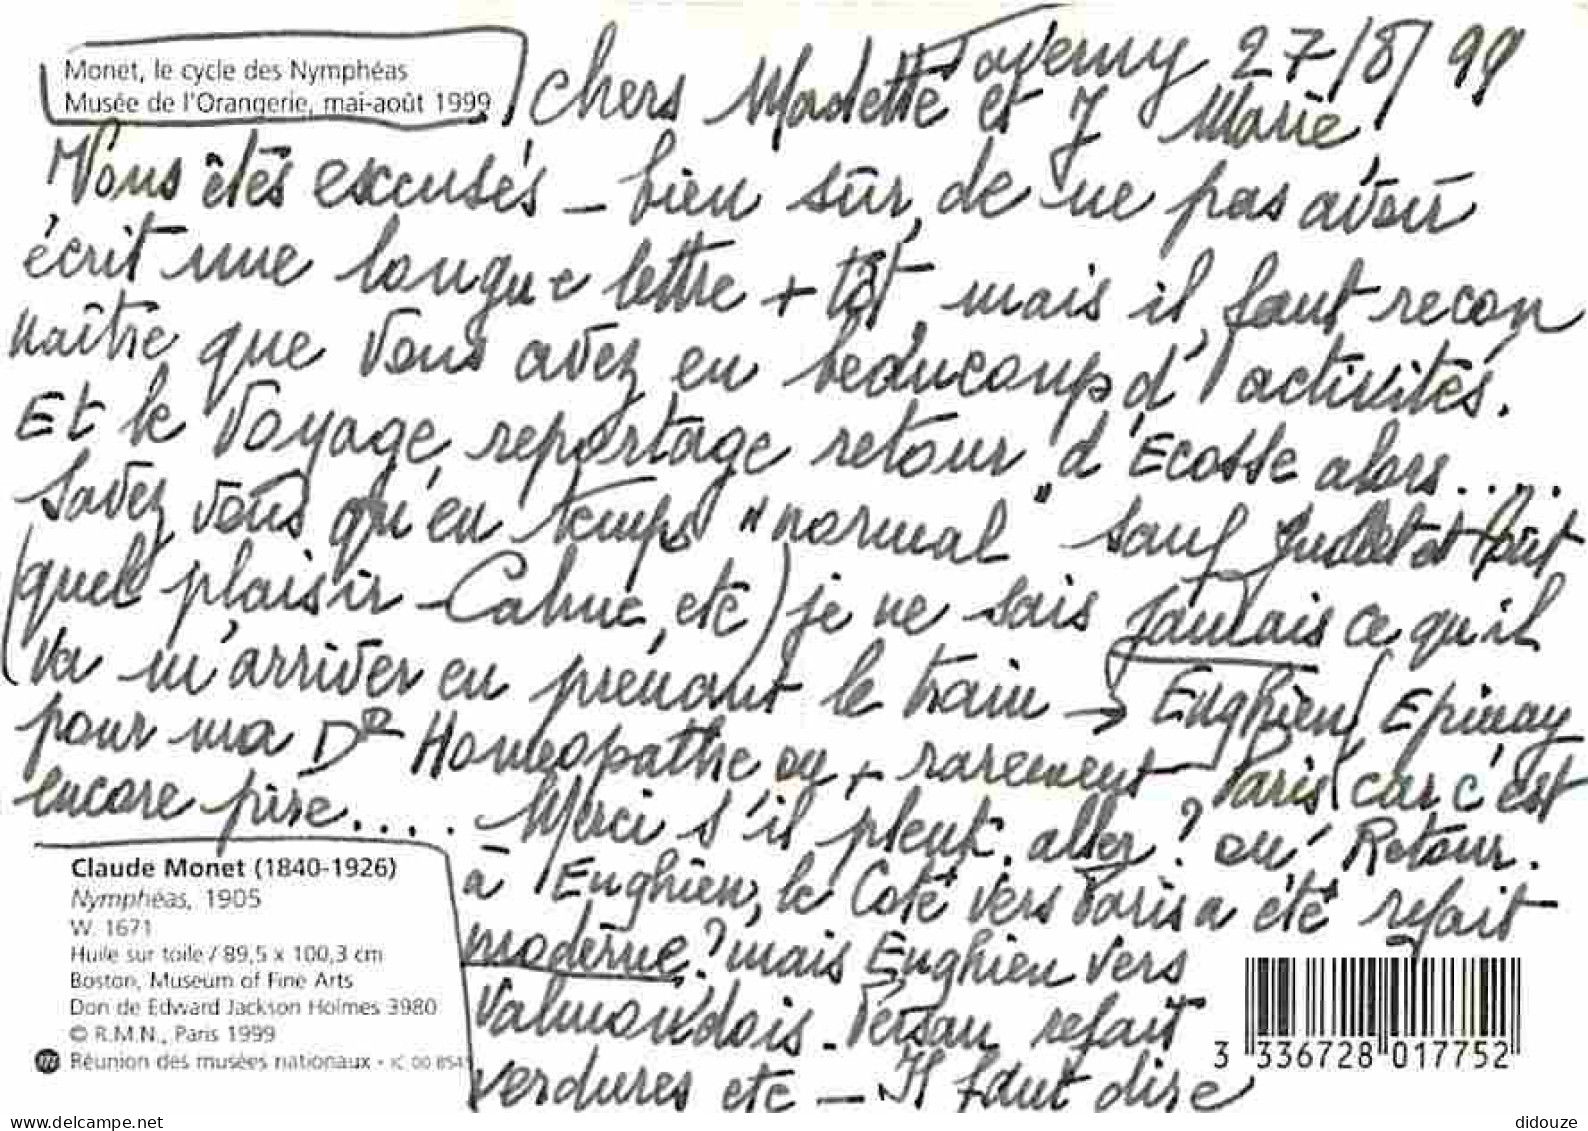 Taverny 27/8/99
Monet, le cycle des Nymphéas
Musée de l'Orangerie, mai-août 1999
Chers Madette et J Marie
Vous êtes excusés - bien sûr, de ne pas avoir
écrit une longue lettre + tôt, mais il faut recon
naître que vous avez eu beaucoup d'activités.
Et le voyage, reportage retour d'Ecosse alors.....
Savez vous qu'en temps "normal" sauf Juillet et Août
(quel plaisir - Calme, etc) je ne sais jamais ce qu'il
va m'arriver en prenant le train → Enghien (Epinay
pour ma DR Homéopathe ou + rarement Paris (car c'est
encore pire.... Merci s'il pleut. aller? ou Retour.
à Enghien, le Coté vers Paris a été refait
moderne? mais Enghien vers
Valmondois - Persan refait
verdures etc - Il faut dire
Claude Monet (1840-1926)
Nymphéas, 1905
W. 1671
Huile sur toile / 89,5 x 100,3 cm
Boston, Museum of Fine Arts
Don de Edward Jackson Holmes 3980
© R.M.N., Paris 1999
Réunion des musées nationaux - IC 00 854
3 336728 017752
www.delcampe.net
didouze